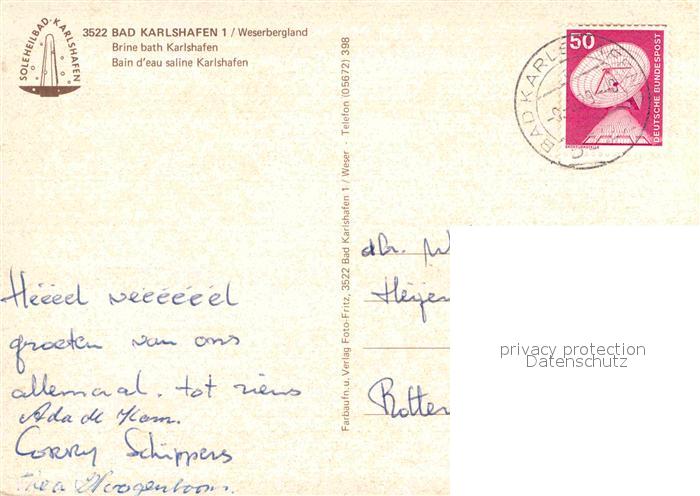 SOLEHEILBAD · KARLSHAFEN
3522 BAD KARLSHAFEN 1 / Weserbergland
Brine bath Karlshafen
Bain d'eau saline Karlshafen
Farbaufn. u. Verlag Foto-Fritz, 3522 Bad Karlshafen 1 / Weser Telefon (05672) 398
50
DEUTSCHE BUNDESPOST
BAD KARLS
Héëél véééééél
groeten van ons
allemaal. tot ziens
Ada de Kom.
Corry Schippers
Thea Hoogenboom.
Heijen
Rotter
privacy protection
Datenschutz